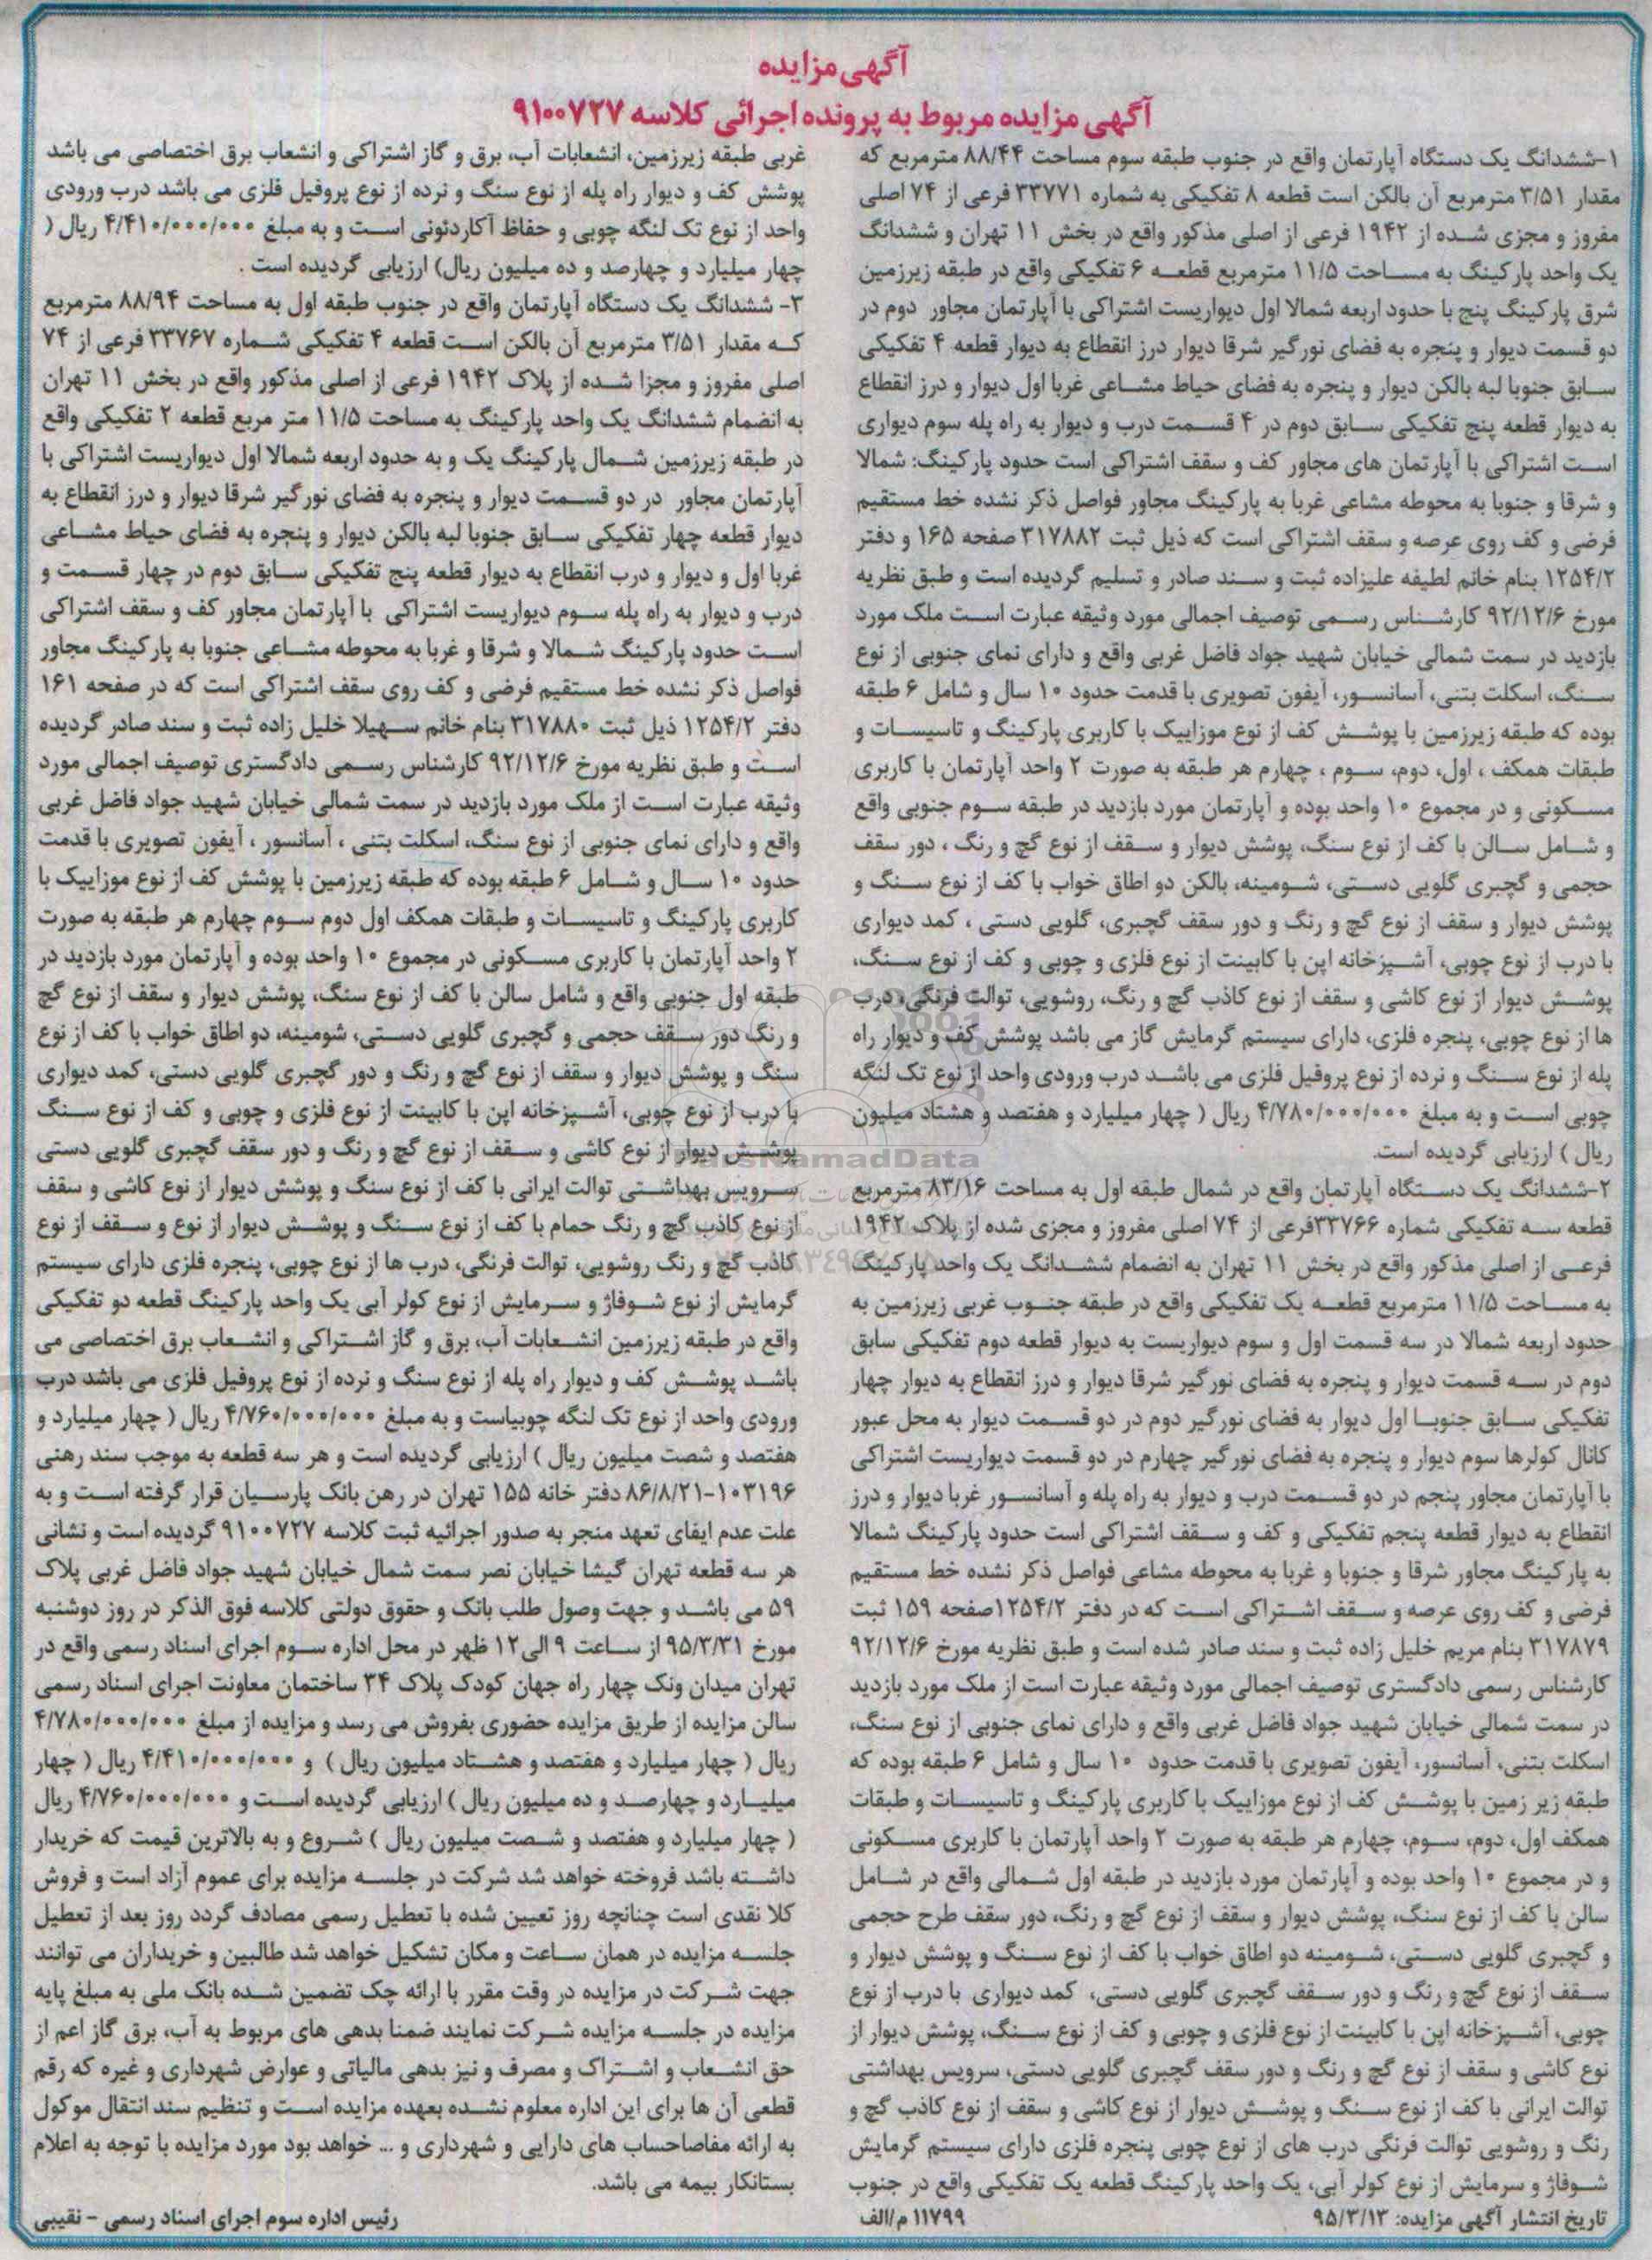 آگهی مزایده
آگهی مزایده مربوط به پرونده اجرائی کلاسه ۹۱۰۰۷۲۷
۱-ششدانگ یک دستگاه آپارتمان واقع در جنوب طبقه سوم مساحت ۸۸/۴۴ مترمربع که
مقدار ۳/۵۱ مترمربع آن بالکن است قطعه ۸ تفکیکی به شماره ۳۳۷۷۱ فرعی از ۷۴ اصلی
مفروز و مجزی شده از ۱۹۴۲ فرعی از اصلی مذکور واقع در بخش ۱۱ تهران و ششدانگ
یک واحد پارکینگ به مساحت ۱۱/۵ مترمربع قطعه ۶ تفکیکی واقع در طبقه زیرزمین
شرق پارکینگ پنج با حدود اربعه شمالا اول دیواریست اشتراکی با آپارتمان مجاور دوم در
دو قسمت دیوار و پنجره به فضای نورگیر شرقا دیوار درز انقطاع به دیوار قطعه ۴ تفکیکی
سابق جنوبا لبه بالکن دیوار و پنجره به فضای حیاط مشاعی غربا اول دیوار و درز انقطاع
به دیوار قطعه پنج تفکیکی سابق دوم در ۴ قسمت درب و دیوار به راه پله سوم دیواری
است اشتراکی با آپارتمان های مجاور کف و سقف اشتراکی است حدود پارکینگ: شمالا
و شرقا و جنوبا به محوطه مشاعی غربا به پارکینگ مجاور فواصل ذکر نشده خط مستقیم
فرضی و کف روی عرصه و سقف اشتراکی است که ذیل ثبت ۳۱۷۸۸۲ صفحه ۱۶۵ و دفتر
۱۲۵۴/۲ بنام خانم لطیفه علیزاده ثبت و سند صادر و تسلیم گردیده است و طبق نظریه
مورخ ۹۲/۱۲/۶ کارشناس رسمی توصیف اجمالی مورد وثیقه عبارت است ملک مورد
بازدید در سمت شمالی خیابان شهید جواد فاضل غربی واقع و دارای نمای جنوبی از نوع
سنگ، اسکلت بتنی، آسانسور، آیفون تصویری با قدمت حدود ۱۰ سال و شامل ۶ طبقه
بوده که طبقه زیرزمین با پوشش کف از نوع موزاییک با کاربری پارکینگ و تاسیسات و
طبقات همکف ، اول، دوم، سوم ، چهارم هر طبقه به صورت ۲ واحد آپارتمان با کاربری
مسکونی و در مجموع ۱۰ واحد بوده و آپارتمان مورد بازدید در طبقه سوم جنوبی واقع
و شامل سالن با کف از نوع سنگ، پوشش دیوار و سقف از نوع گچ و رنگ ، دور سقف
حجمی و گچبری گلویی دستی، شومینه، بالکن دو اطاق خواب با کف از نوع سنگ و
پوشش دیوار و سقف از نوع گچ و رنگ و دور سقف گچبری، گلویی دستی ، کمد دیواری
با درب از نوع چوبی، آشپزخانه اپن با کابینت از نوع فلزی و چوبی و کف از نوع سنگ،
پوشش دیوار از نوع کاشی و سقف از نوع کاذب گچ و رنگ، روشویی، توالت فرنگی، درب
ها از نوع چوبی، پنجره فلزی، دارای سیستم گرمایش گاز می باشد پوشش کف و دیوار راه
پله از نوع سنگ و نرده از نوع پروفیل فلزی می باشد درب ورودی واحد از نوع تک لنگه
چوبی است و به مبلغ ۴/۷۸۰/۰۰۰/۰۰۰ ریال ( چهار میلیارد و هفتصد و هشتاد میلیون
ریال ) ارزیابی گردیده است.
۲-ششدانگ یک دستگاه آپارتمان واقع در شمال طبقه اول به مساحت ۸۳/۱۶ مترمربع
قطعه سه تفکیکی شماره ۳۳۷۶۶فرعی از ۷۴ اصلی مفروز و مجزی شده از پلاک ۱۹۴۲
فرعی از اصلی مذکور واقع در بخش ۱۱ تهران به انضمام ششدانگ یک واحد پارکینگ
به مساحت ۱۱/۵ مترمربع قطعه یک تفکیکی واقع در طبقه جنوب غربی زیرزمین به
حدود اربعه شمالا در سه قسمت اول و سوم دیواریست به دیوار قطعه دوم تفکیکی سابق
دوم در سه قسمت دیوار و پنجره به فضای نورگیر شرقا دیوار و درز انقطاع به دیوار چهار
تفکیکی سابق جنوبا اول دیوار به فضای نورگیر دوم در دو قسمت دیوار به محل عبور
کانال کولرها سوم دیوار و پنجره به فضای نورگیر چهارم در دو قسمت دیواریست اشتراکی
با آپارتمان مجاور پنجم در دو قسمت درب و دیوار به راه پله و آسانسور غربا دیوار و درز
انقطاع به دیوار قطعه پنجم تفکیکی و کف و سقف اشتراکی است حدود پارکینگ شمالا
به پارکینگ مجاور شرقا و جنوبا و غربا به محوطه مشاعی فواصل ذکر نشده خط مستقیم
فرضی و کف روی عرصه و سقف اشتراکی است که در دفتر ۱۲۵۴/۲صفحه ۱۵۹ ثبت
۳۱۷۸۷۹ بنام مریم خلیل زاده ثبت و سند صادر شده است و طبق نظریه مورخ ۹۲/۱۲/۶
کارشناس رسمی دادگستری توصیف اجمالی مورد وثیقه عبارت است از ملک مورد بازدید
در سمت شمالی خیابان شهید جواد فاضل غربی واقع و دارای نمای جنوبی از نوع سنگ،
اسکلت بتنی، آسانسور، آیفون تصویری با قدمت حدود ۱۰ سال و شامل ۶ طبقه بوده که
طبقه زیر زمین با پوشش کف از نوع موزاییک با کاربری پارکینگ و تاسیسات و طبقات
همکف اول، دوم، سوم، چهارم هر طبقه به صورت ۲ واحد آپارتمان با کاربری مسکونی
و در مجموع ۱۰ واحد بوده و آپارتمان مورد بازدید در طبقه اول شمالی واقع در شامل
سالن با کف از نوع سنگ، پوشش دیوار و سقف از نوع گچ و رنگ، دور سقف طرح حجمی
و گچبری گلویی دستی، شومینه دو اطاق خواب با کف از نوع سنگ و پوشش دیوار و
سقف از نوع گچ و رنگ و دور سقف گچبری گلویی دستی، کمد دیواری با درب از نوع
چوبی، آشپزخانه اپن با کابینت از نوع فلزی و چوبی و کف از نوع سنگ، پوشش دیوار از
نوع کاشی و سقف از نوع گچ و رنگ و دور سقف گچبری گلویی دستی، سرویس بهداشتی
توالت ایرانی با کف از نوع سنگ و پوشش دیوار از نوع کاشی و سقف از نوع کاذب گچ و
رنگ و روشویی توالت فرنگی درب های از نوع چوبی پنجره فلزی دارای سیستم گرمایش
شوفاژ و سرمایش از نوع کولر آبی، یک واحد پارکینگ قطعه یک تفکیکی واقع در جنوب
غربی طبقه زیرزمین، انشعابات آب، برق و گاز اشتراکی و انشعاب برق اختصاصی می باشد
پوشش کف و دیوار راه پله از نوع سنگ و نرده از نوع پروفیل فلزی می باشد درب ورودی
واحد از نوع تک لنگه چوبی و حفاظ آکاردئونی است و به مبلغ ۴/۴۱۰/۰۰۰/۰۰۰ ریال (
چهار میلیارد و چهارصد و ده میلیون ریال) ارزیابی گردیده است .
۳- ششدانگ یک دستگاه آپارتمان واقع در جنوب طبقه اول به مساحت ۸۸/۹۴ مترمربع
که مقدار ۳/۵۱ مترمربع آن بالکن است قطعه ۴ تفکیکی شماره ۳۳۷۶۷ فرعی از ۷۴
اصلی مفروز و مجزا شده از پلاک ۱۹۴۲ فرعی از اصلی مذکور واقع در بخش ۱۱ تهران
به انضمام ششدانگ یک واحد پارکینگ به مساحت ۱۱/۵ متر مربع قطعه ۲ تفکیکی واقع
در طبقه زیرزمین شمال پارکینگ یک و به حدود اربعه شمالا اول دیواریست اشتراکی با
آپارتمان مجاور در دو قسمت دیوار و پنجره به فضای نورگیر شرقا دیوار و درز انقطاع به
دیوار قطعه چهار تفکیکی سابق جنوبا لبه بالکن دیوار و پنجره به فضای حیاط مشاعی
غربا اول و دیوار و درب انقطاع به دیوار قطعه پنج تفکیکی سابق دوم در چهار قسمت و
درب و دیوار به راه پله سوم دیواریست اشتراکی با آپارتمان مجاور کف و سقف اشتراکی
است حدود پارکینگ شمالا و شرقا و غربا به محوطه مشاعی جنوبا به پارکینگ مجاور
فواصل ذکر نشده خط مستقیم فرضی و کف روی سقف اشتراکی است که در صفحه ۱۶۱
دفتر ۱۲۵۴/۲ ذیل ثبت ۳۱۷۸۸۰ بنام خانم سهیلا خلیل زاده ثبت و سند صادر گردیده
است و طبق نظریه مورخ ۹۲/۱۲/۶ کارشناس رسمی دادگستری توصیف اجمالی مورد
وثیقه عبارت است از ملک مورد بازدید در سمت شمالی خیابان شهید جواد فاضل غربی
واقع و دارای نمای جنوبی از نوع سنگ، اسکلت بتنی ، آسانسور ، آیفون تصویری با قدمت
حدود ۱۰ سال و شامل ۶ طبقه بوده که طبقه زیرزمین با پوشش کف از نوع موزاییک با
کاربری پارکینگ و تاسیسات و طبقات همکف اول دوم سوم چهارم هر طبقه به صورت
۲ واحد آپارتمان با کاربری مسکونی در مجموع ۱۰ واحد بوده و آپارتمان مورد بازدید در
طبقه اول جنوبی واقع و شامل سالن با کف از نوع سنگ، پوشش دیوار و سقف از نوع گچ
و رنگ دور سقف حجمی و گچبری گلویی دستی، شومینه، دو اطاق خواب با کف از نوع
سنگ و پوشش دیوار و سقف از نوع گچ و رنگ و دور گچبری گلویی دستی، کمد دیواری
با درب از نوع چوبی، آشپزخانه اپن با کابینت از نوع فلزی و چوبی و کف از نوع سنگ
پوشش دیوار از نوع کاشی و سقف از نوع گچ و رنگ و دور سقف گچبری گلویی دستی
سرویس بهداشتی توالت ایرانی با کف از نوع سنگ و پوشش دیوار از نوع کاشی و سقف
از نوع کاذب گچ و رنگ حمام با کف از نوع سنگ و پوشش دیوار از نوع و سقف از نوع
کاذب گچ و رنگ روشویی، توالت فرنگی، درب ها از نوع چوبی، پنجره فلزی دارای سیستم
گرمایش از نوع شوفاژ و سرمایش از نوع کولر آبی یک واحد پارکینگ قطعه دو تفکیکی
واقع در طبقه زیرزمین انشعابات آب، برق و گاز اشتراکی و انشعاب برق اختصاصی می
باشد پوشش کف و دیوار راه پله از نوع سنگ و نرده از نوع پروفیل فلزی می باشد درب
ورودی واحد از نوع تک لنگه چوبیاست و به مبلغ ۴/۷۶۰/۰۰۰/۰۰۰ ریال ( چهار میلیارد و
هفتصد و شصت میلیون ریال ) ارزیابی گردیده است و هر سه قطعه به موجب سند رهنی
۱۰۳۱۹۶-۸۶/۸/۲۱ دفتر خانه ۱۵۵ تهران در رهن بانک پارسیان قرار گرفته است و به
علت عدم ایفای تعهد منجر به صدور اجرائیه ثبت کلاسه ۹۱۰۰۷۲۷ گردیده است و نشانی
هر سه قطعه تهران گیشا خیابان نصر سمت شمال خیابان شهید جواد فاضل غربی پلاک
۵۹ می باشد و جهت وصول طلب بانک و حقوق دولتی کلاسه فوق الذکر در روز دوشنبه
مورخ ۹۵/۳/۳۱ از ساعت ۹ الی ۱۲ ظهر در محل اداره سوم اجرای اسناد رسمی واقع در
تهران میدان ونک چهار راه جهان کودک پلاک ۳۴ ساختمان معاونت اجرای اسناد رسمی
سالن مزایده از طریق مزایده حضوری بفروش می رسد و مزایده از مبلغ ۴/۷۸۰/۰۰۰/۰۰۰
ریال ( چهار میلیارد و هفتصد و هشتاد میلیون ریال ) و ۴/۴۱۰/۰۰۰/۰۰۰ ریال ( چهار
میلیارد و چهارصد و ده میلیون ریال ) ارزیابی گردیده است و ۴/۷۶۰/۰۰۰/۰۰۰ ریال
( چهار میلیارد و هفتصد و شصت میلیون ریال ) شروع و به بالاترین قیمت که خریدار
داشته باشد فروخته خواهد شد شرکت در جلسه مزایده برای عموم آزاد است و فروش
کلا نقدی است چنانچه روز تعیین شده با تعطیل رسمی مصادف گردد روز بعد از تعطیل
جلسه مزایده در همان ساعت و مکان تشکیل خواهد شد طالبین و خریداران می توانند
جهت شرکت در مزایده در وقت مقرر با ارائه چک تضمین شده بانک ملی به مبلغ پایه
مزایده در جلسه مزایده شرکت نمایند ضمنا بدهی های مربوط به آب، برق گاز اعم از
حق انشعاب و اشتراک و مصرف و نیز بدهی مالیاتی و عوارض شهرداری و غیره که رقم
قطعی آن ها برای این اداره معلوم نشده بعهده مزایده است و تنظیم سند انتقال موکول
به ارائه مفاصاحساب های دارایی و شهرداری و ... خواهد بود مورد مزایده با توجه به اعلام
بستانکار بیمه می باشد.
تاریخ انتشار آگهی مزایده: ۹۵/۳/۱۳
۱۱۷۹۹ م/الف
رئیس اداره سوم اجرای اسناد رسمی - نقیبی
ParsNamadData